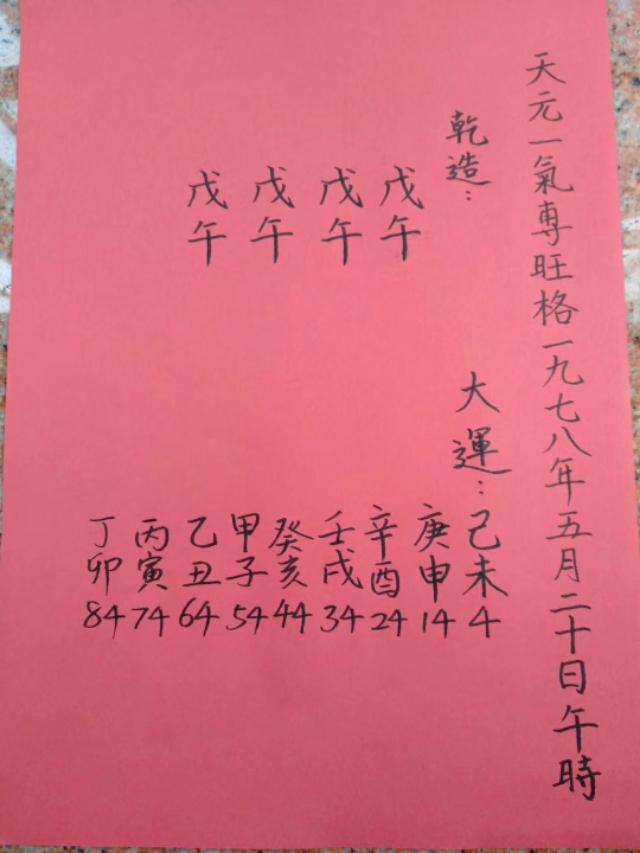 天元一氣專旺格一九七八年五月二十日午時
乾造：
戊午
戊午
戊午
戊午
大運：
己未4
庚申14
辛酉24
壬戌34
癸亥44
甲子54
乙丑64
丙寅74
丁卯84